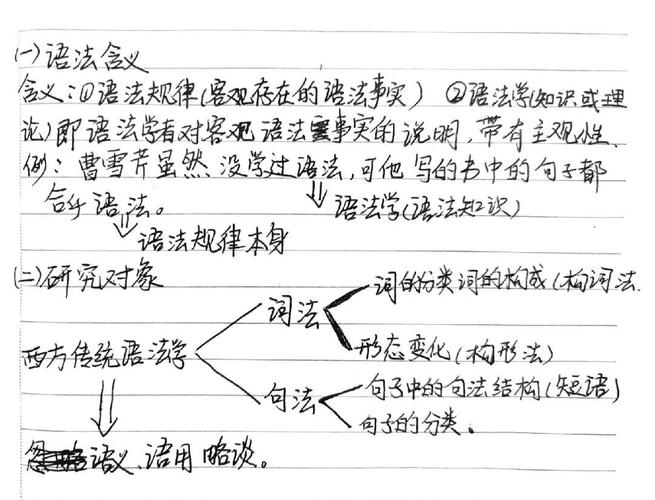 (一)语法含义
含义:①语法规律(客观存在的语法事实) ②语法学(知识或理
论)即语法学者对客观语法事实的说明,带有主观性.
例:曹雪芹虽然没学过语法,可他写的书中的句子都
合乎语法。 ⇓语法学(语法知识)
⇓语法规律本身
(二)研究对象
词的分类词的构成(构词法.
词法
西方传统语法学 形态变化(构形法)
句子中的句法结构(短语)
句法
句子的分类。
语义、语用略谈。